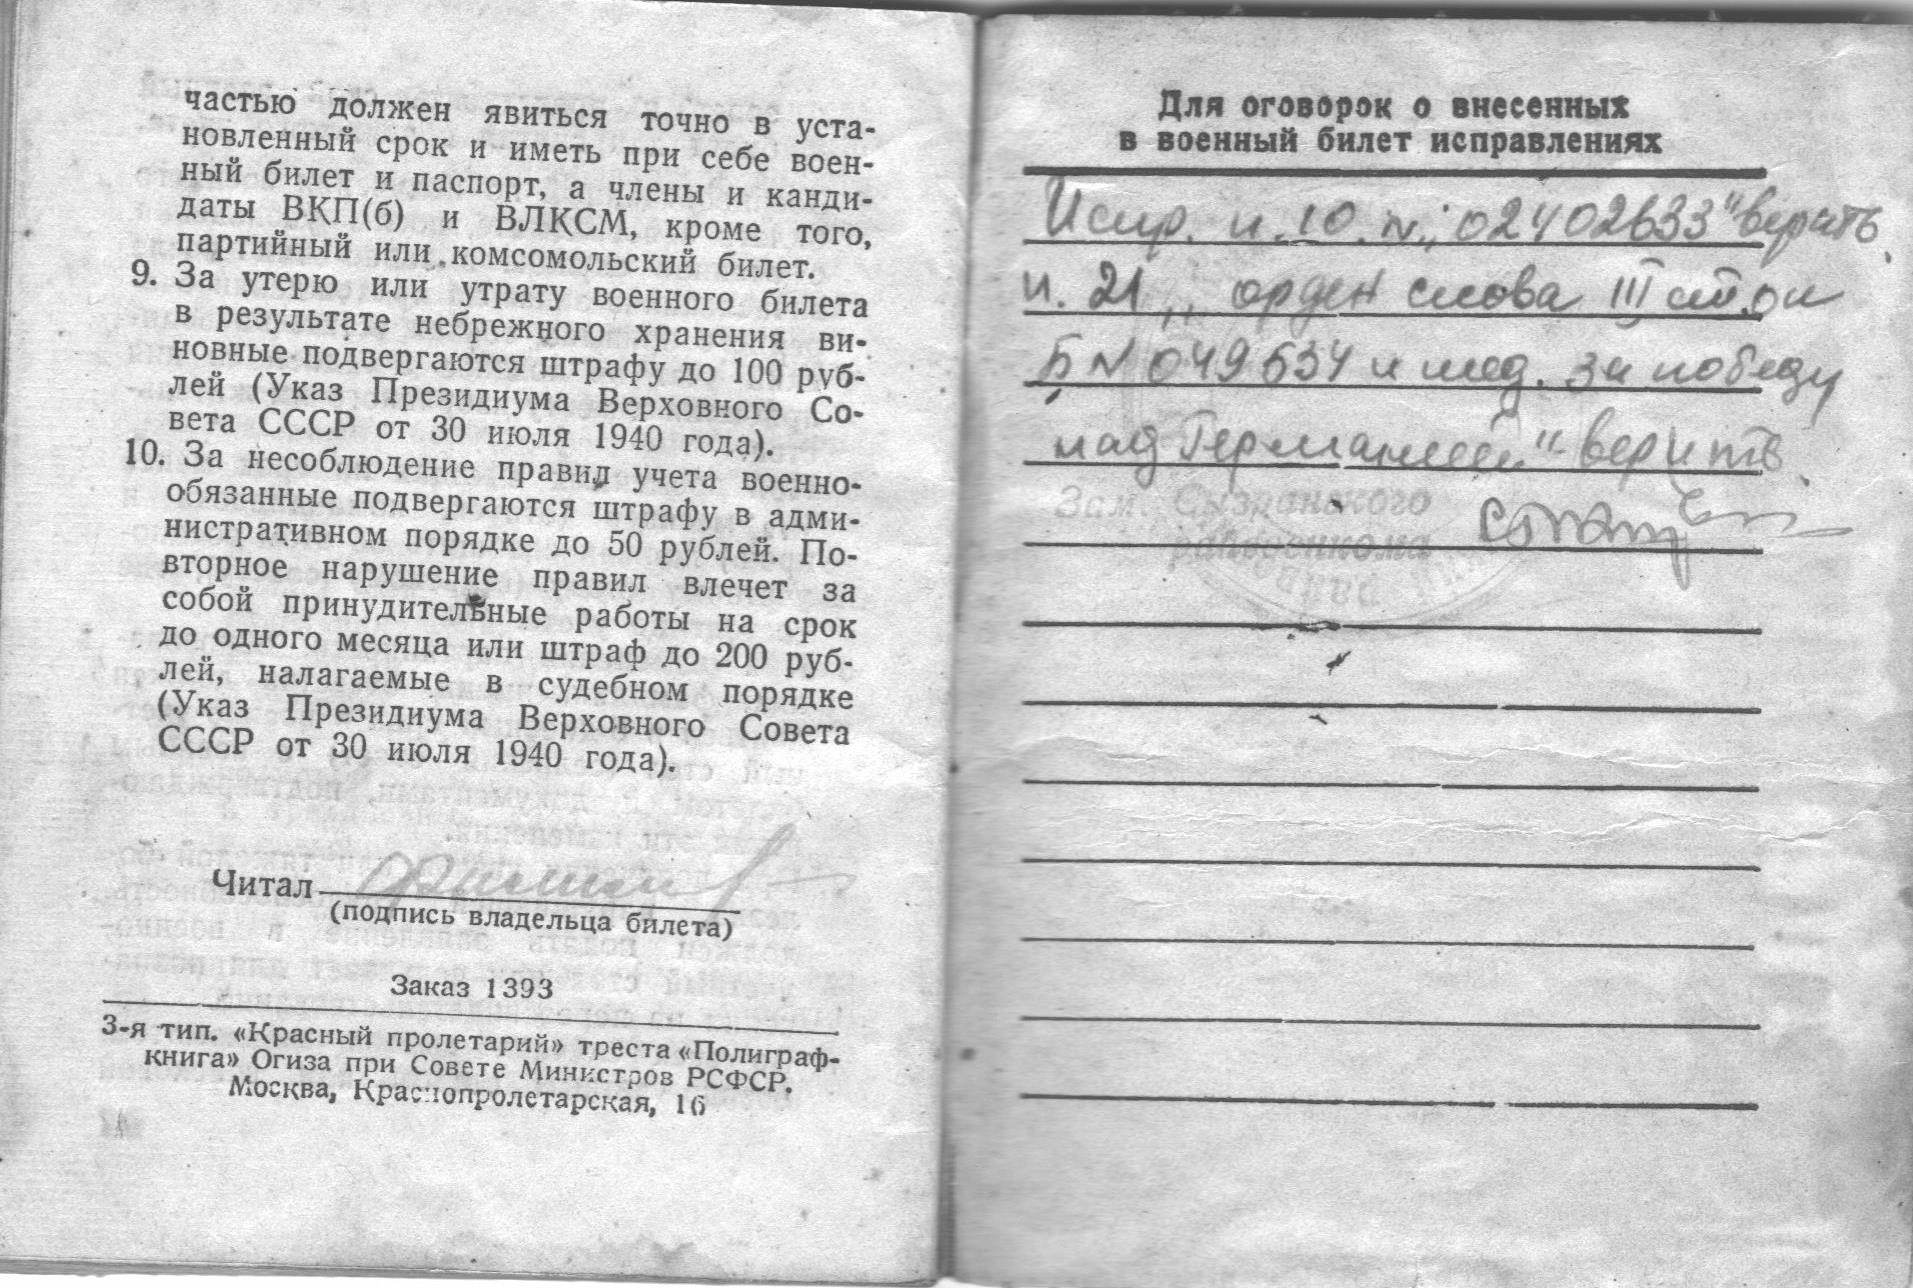 частью должен явиться точно в уста-
новленный срок и иметь при себе воен-
ный билет и паспорт, а члены и канди-
даты ВКП(б) и ВЛКСМ, кроме того,
партийный или комсомольский билет.
9. За утерю или утрату военного билета
в результате небрежного хранения ви-
новные подвергаются штрафу до 100 руб-
лей (Указ Президиума Верховного Со-
вета СССР от 30 июля 1940 года).
10. За несоблюдение правил учета военно-
обязанные подвергаются штрафу в адми-
нистративном порядке до 50 рублей. По-
вторное нарушение правил влечет за
собой принудительные работы на срок
до одного месяца или штраф до 200 руб-
лей, налагаемые в судебном порядке
(Указ Президиума Верховного Совета
СССР от 30 июля 1940 года).
Читал
(подпись владельца билета)
Заказ 1393
3-я тип. «Красный пролетарий» треста «Полиграф-
книга» Огиза при Совете Министров РСФСР.
Москва, Краснопролетарская, 16
Для оговорок о внесенных
в военный билет исправлениях
Испр. п. 10. №„02402633" верить
п. 21 „орден слова III ст.
Б № 049534 и мед. за победу
над Германией" верить.
Зам. Сызранского
райвоенкома